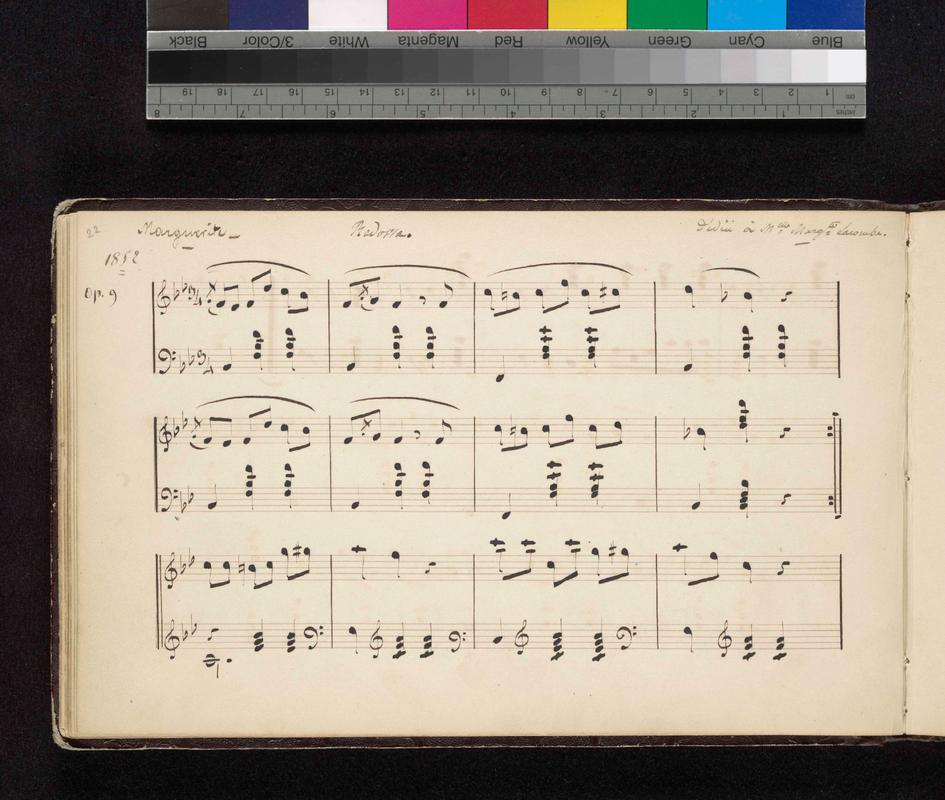 Blue Cyan Green Yellow Red Magenta White 3/Color Black
19 18 17 16 15 14 13 12 11 10 9 8 7 6 5 4 3 2 1 cm
8 7 6 5 4 3 2 1 inches
22 Marguerite Redowa. Dédié à Mlle Margte Lacombe.
1852
Op. 9
3/4
3/4